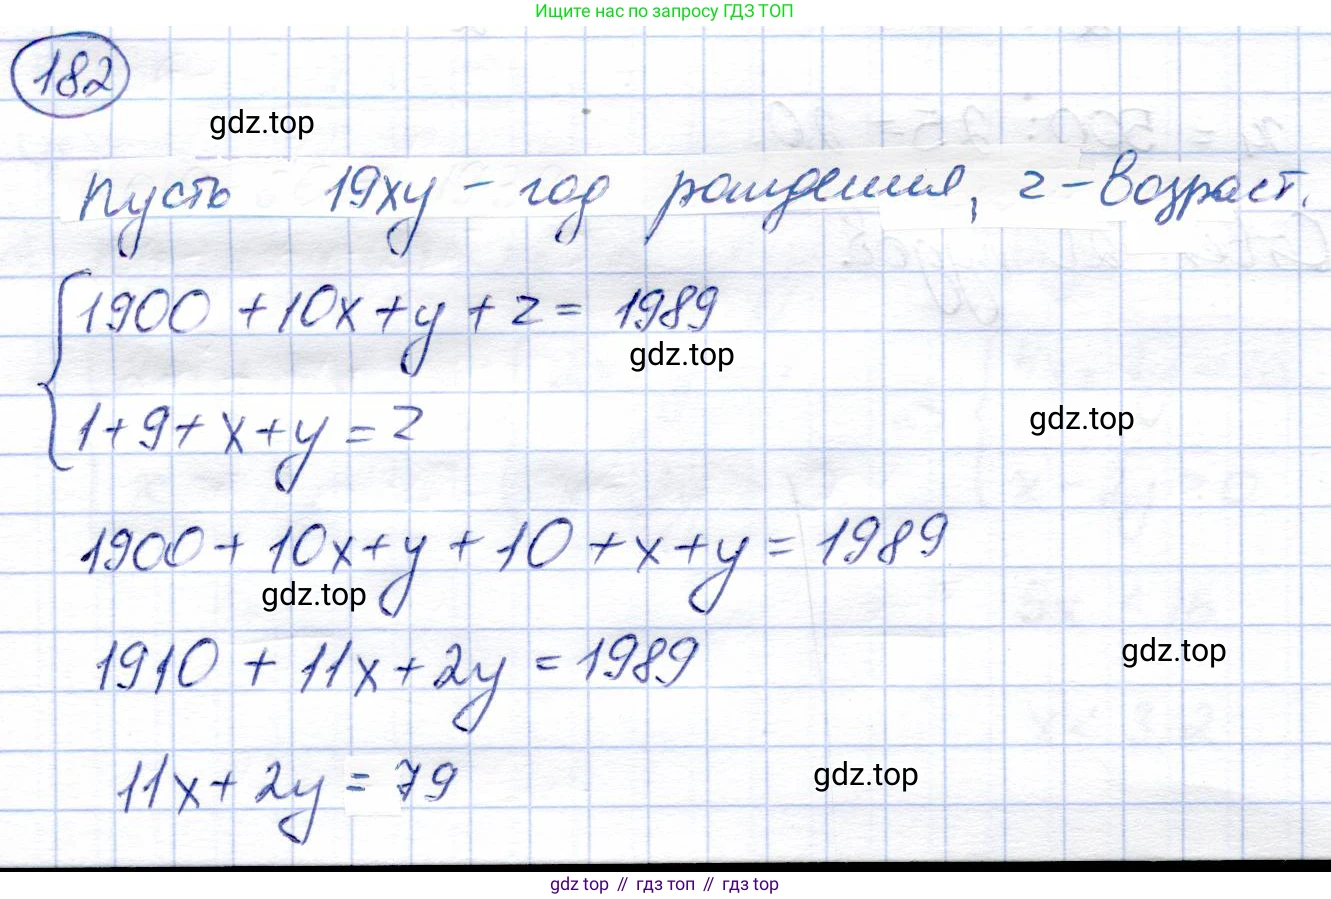 Ищите нас по запросу ГДЗ ТОП
182
gdz.top
Пусть 19xy - год рождения, z - возраст.
1900 + 10x + y + z = 1989
gdz.top
gdz.top
1 + 9 + x + y = z
1900 + 10x + y + 10 + x + y = 1989
gdz.top
1910 + 11x + 2y = 1989
gdz.top
11x + 2y = 79
gdz.top
gdz top // гдз топ // гдз top